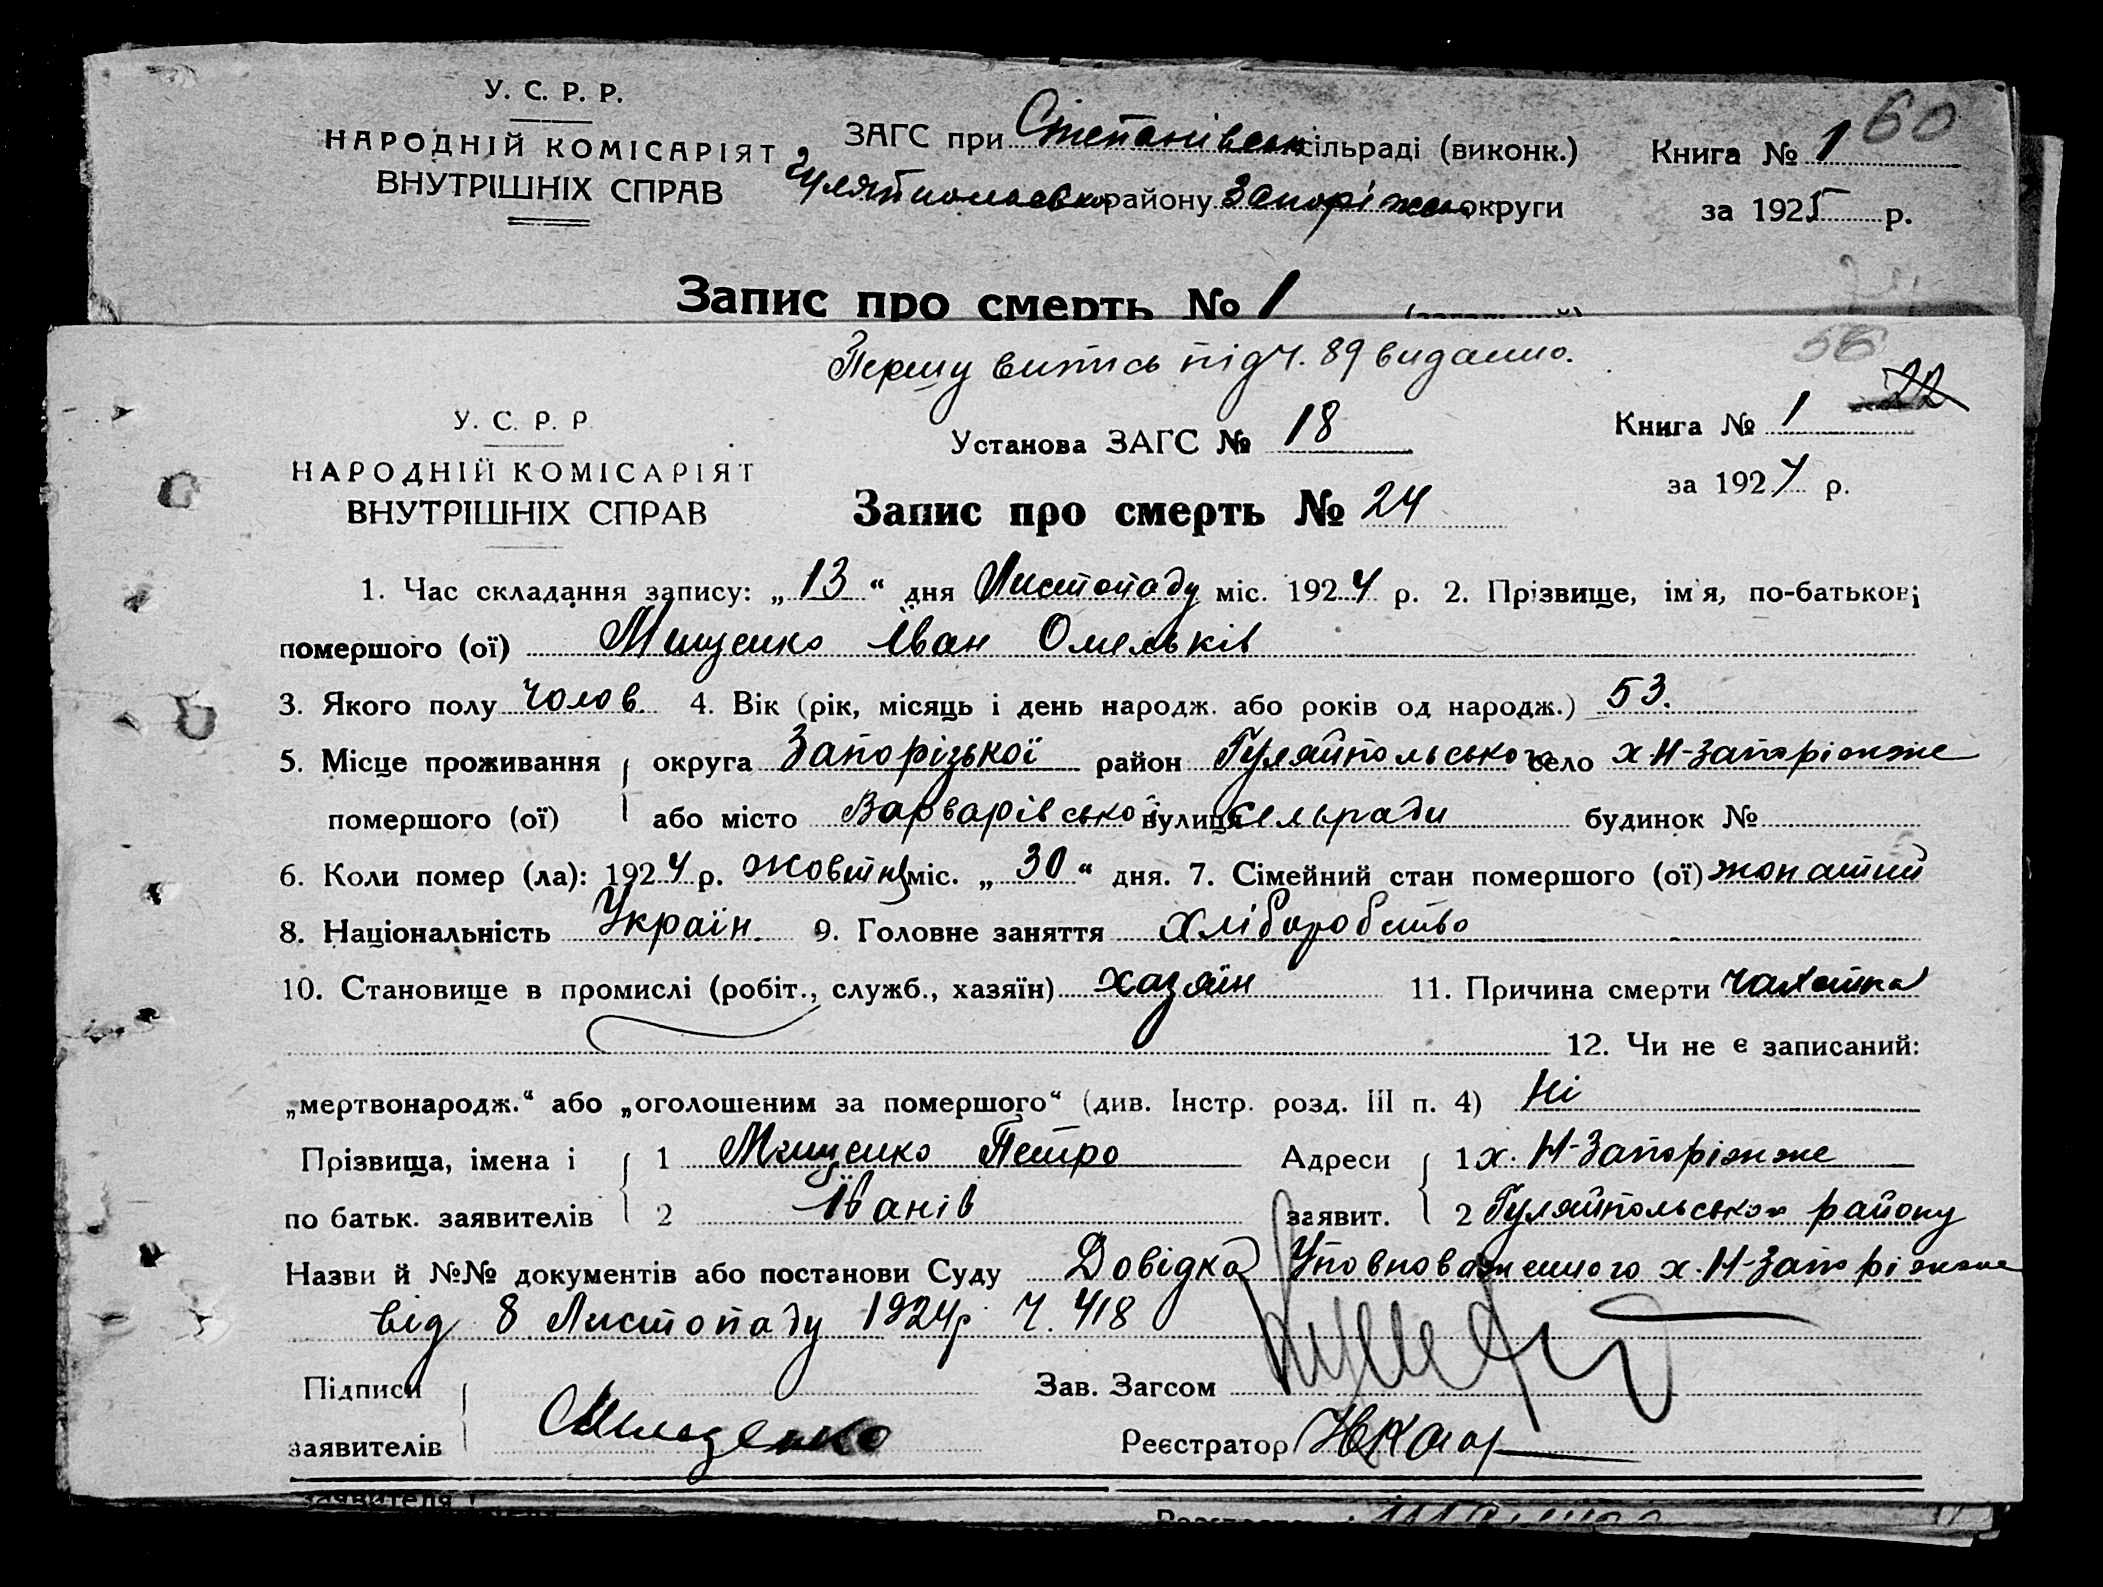 У. С. Р. Р.
НАРОДНІЙ КОМІСАРІЯТ
ВНУТРІШНІХ СПРАВ
ЗАГС при Степанівськ сільраді (виконк.)
Гуляйпольсько району Запоріжсько округи
Книга № 1 60
за 1925 р.
Запис про смерть № 1
Першу витпсь під ч. 89 видано.
56
22
У. С. Р. Р
НАРОДНІЙ КОМІСАРІЯТ
ВНУТРІШНІХ СПРАВ
Установа ЗАГС № 18
Книга № 1
за 1924 р.
Запис про смерть № 24
1. Час складання запису: „ 13 “ дня Листопаду міс. 1924 р. 2. Прізвище, ім'я, по-батькові
помершого (ої) Мищенко Іван Омельків
3. Якого полу Чолов. 4. Вік (рік, місяць і день народж. або років од народж.) 53.
5. Місце проживання округа Запорізької район Гуляйпольського село х Н-Запоріжже
помершого (ої) або місто Варварівської вулиця сельради будинок №
6. Коли помер (ла): 1924 р. Жовтня міс. „ 30 “ дня. 7. Сімейний стан помершого (ої) жонатий
8. Національність Україн. 9. Головне заняття Хліборобство
10. Становище в промислі (робіт., служб., хазяїн) хазяїн 11. Причина смерти Чахотка
12. Чи не є записаний:
„мертвонародж.“ або „оголошеним за помершого“ (див. Інстр. розд. III п. 4) Ні
Прізвища, імена і 1 Мищенко Петро Адреси 1 х. Н-Запоріжже
по батьк. заявителів 2 Іванів заявит. 2 Гуляйпольського району
Назви й №№ документів або постанови Суду Довідка Уповноваженного х. Н-Запоріжже
від 8 Листопаду 1924р Ч. 418
Підписи
заявителів Мищенко
Зав. Загсом
Реєстратор
заявителя